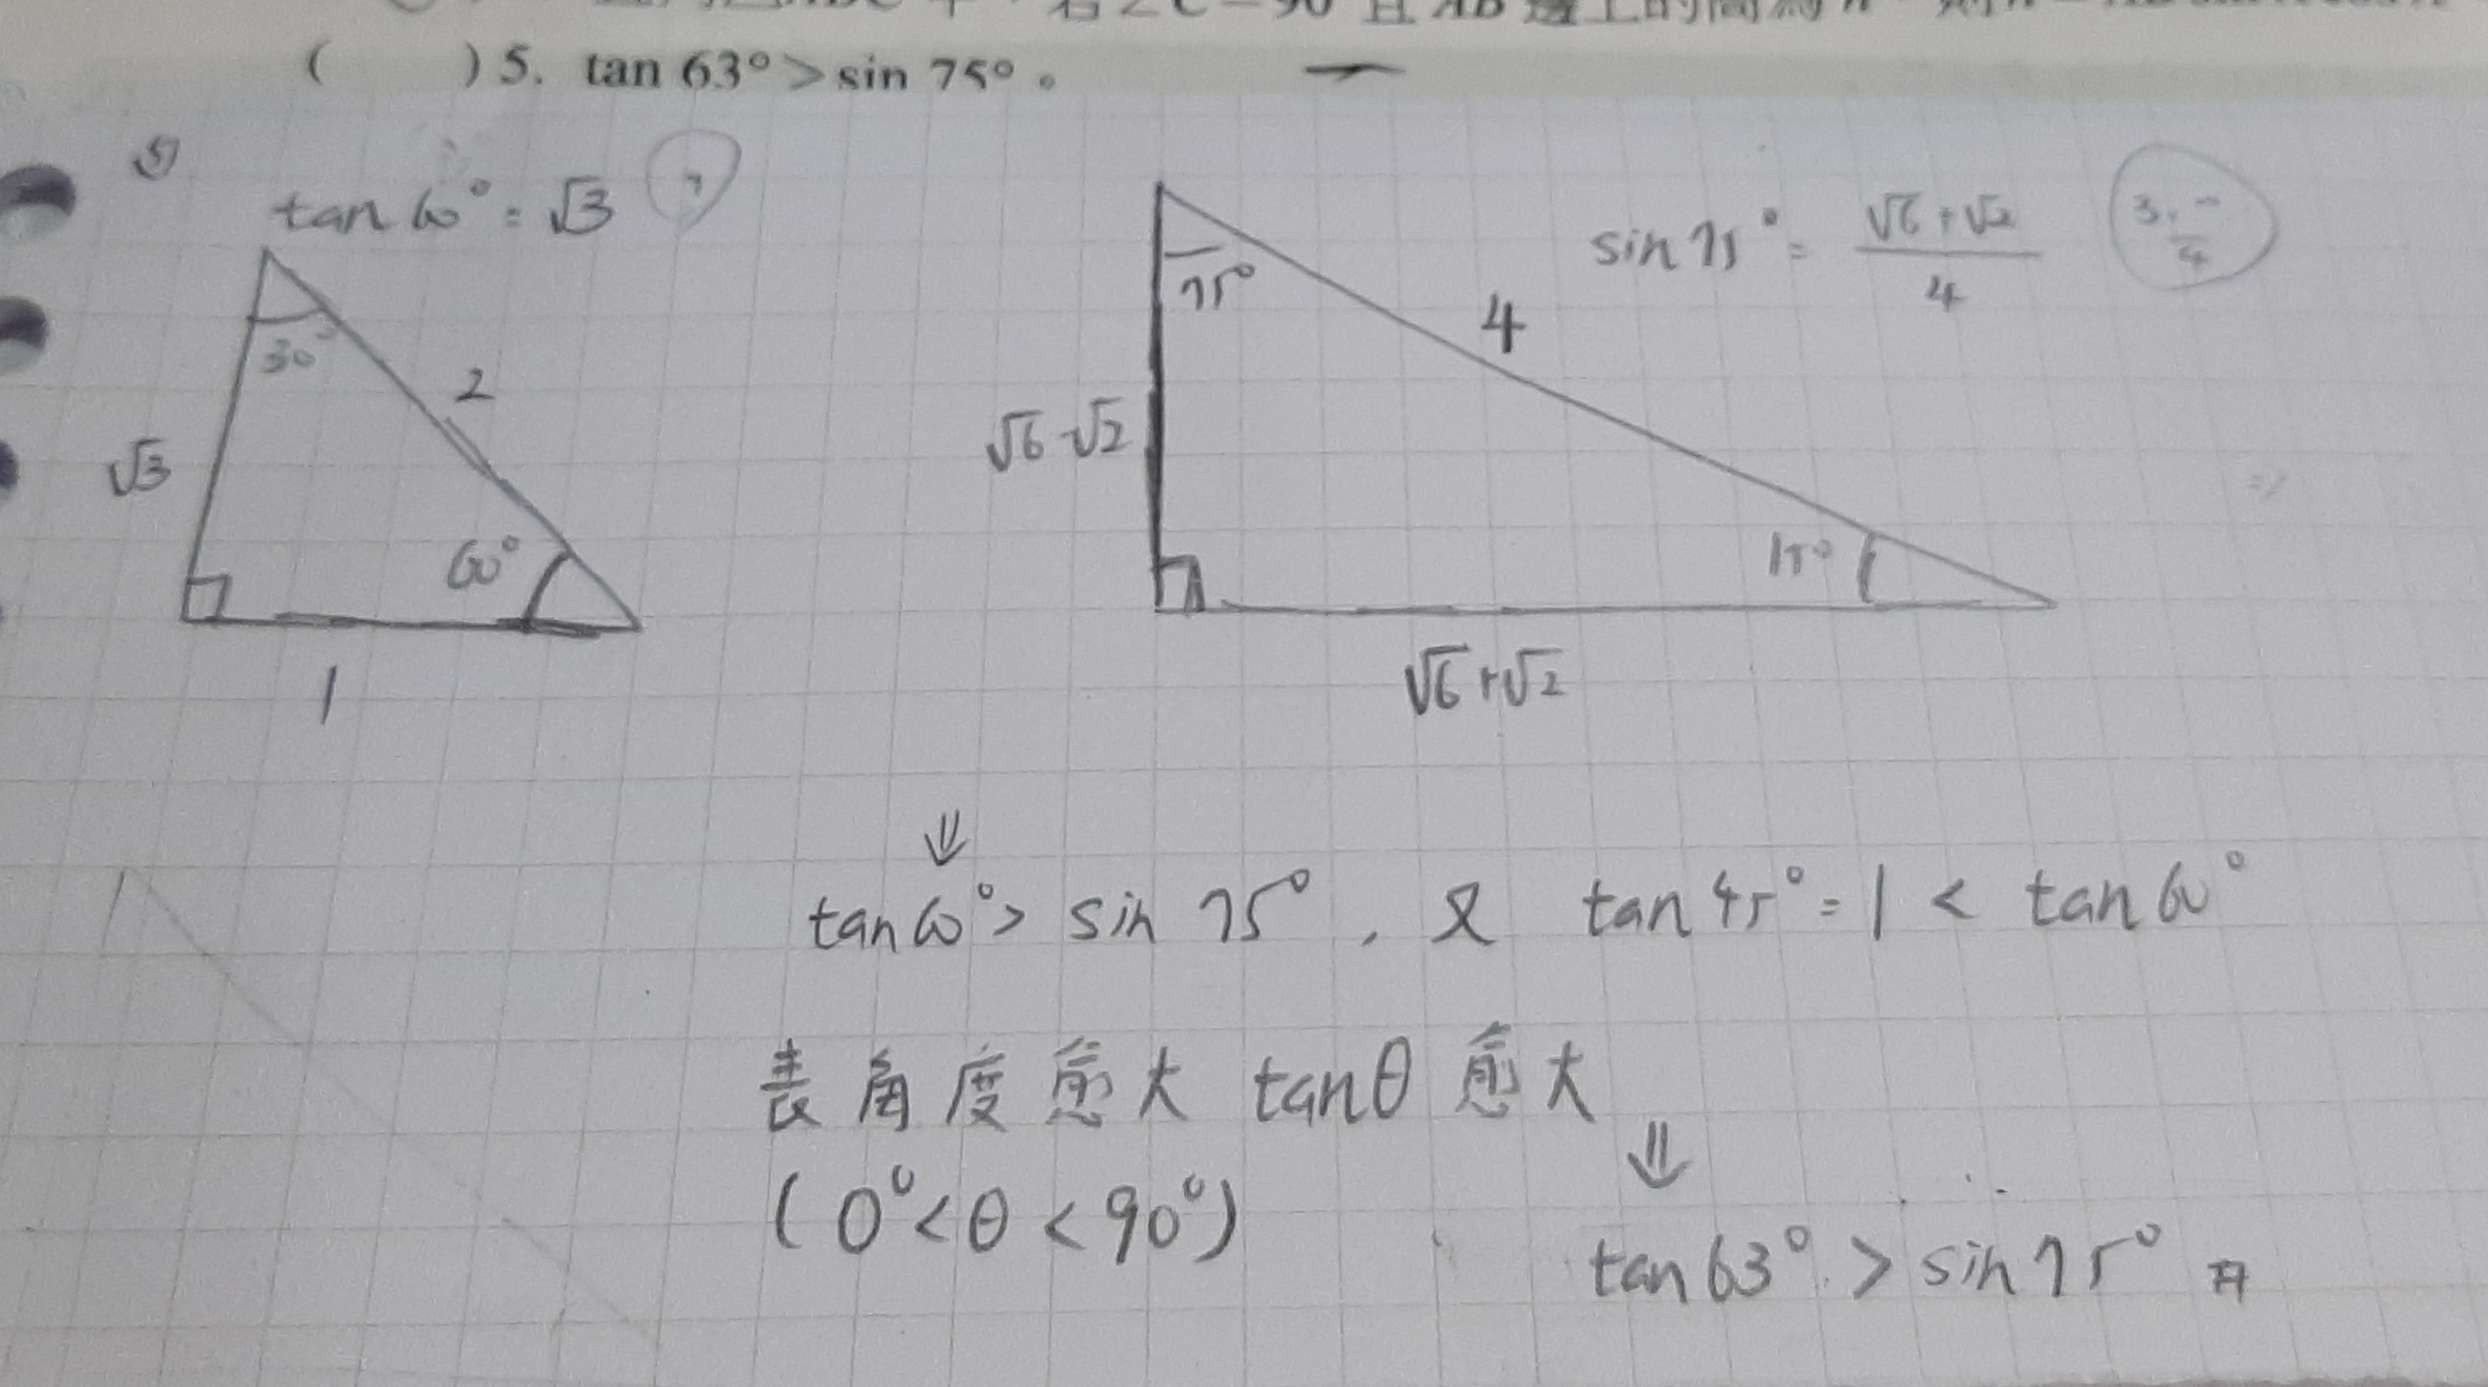 ( )5. tan 63°>sin 75°。
(5)
tan 60° = √3
sin 75° = √6+√2 / 4
30°
2
√3
60°
1
75°
4
√6-√2
15°
√6+√2
⇓
tan 60° > sin 75°, 又 tan 45° = 1 < tan 60°
表角度愈大 tanθ 愈大
⇓
(0° < θ < 90°)
tan 63° > sin 75° #